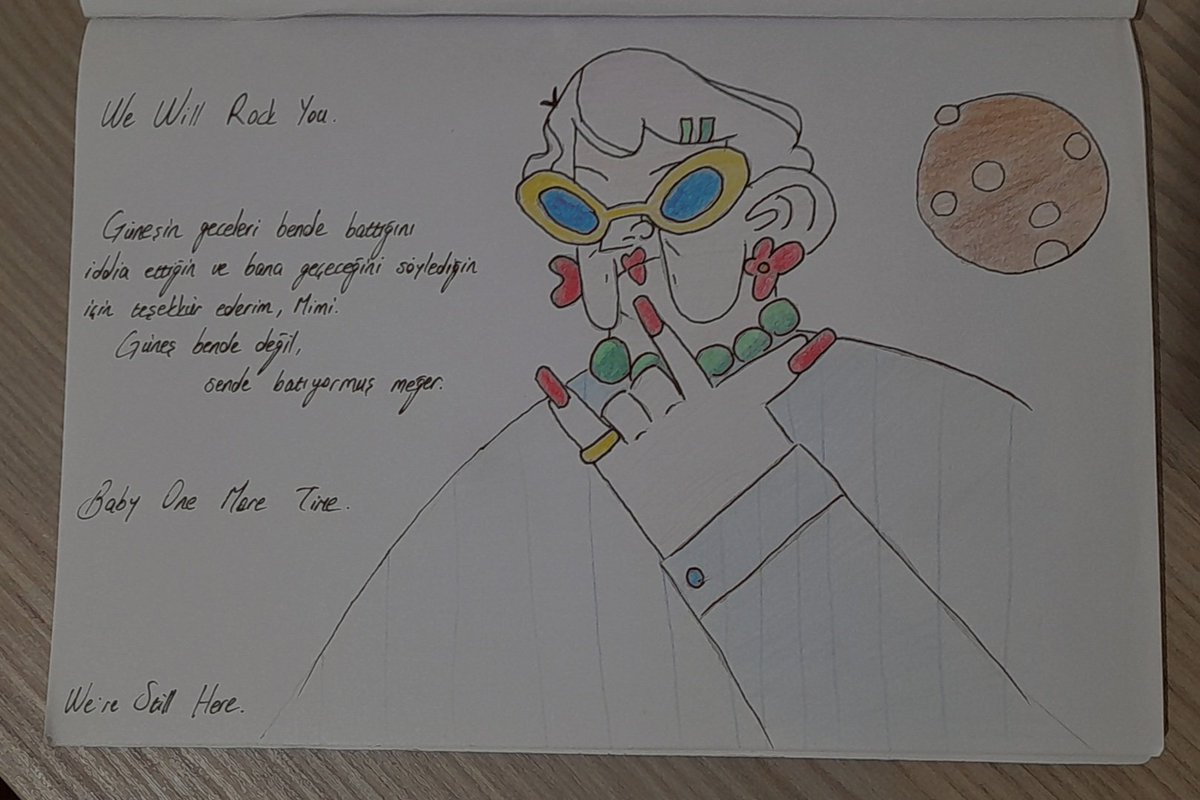 We Will Rock You.
Güneşin geceleri bende battığını
iddia ettiğin ve bana geçeceğini söylediğin
için teşekkür ederim, Mimi.
Güneş bende değil,
sende batıyormuş meğer.
Baby One More Time.
We're Still Here.